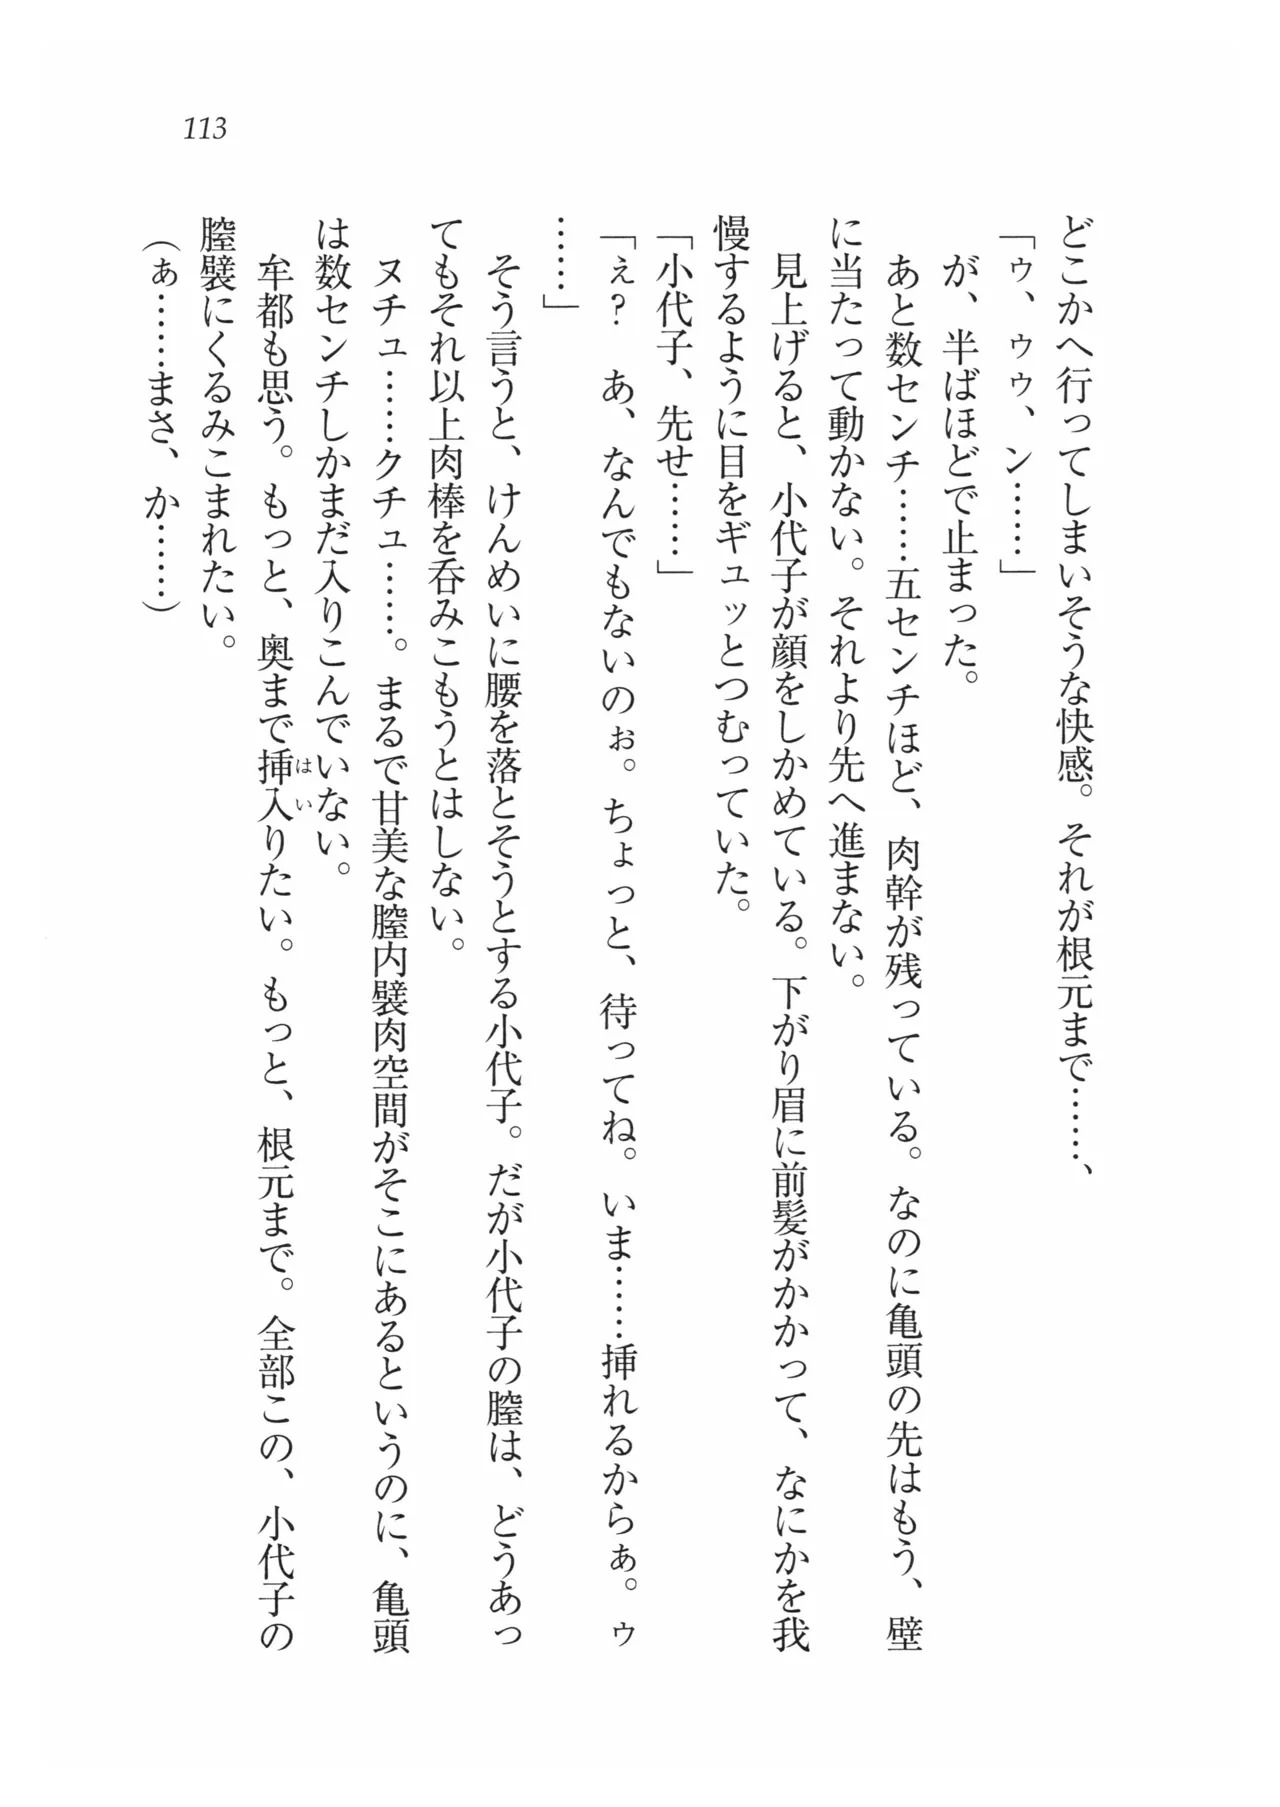 113
どこかへ行ってしまいそうな快感。それが根元まで……、
「ゥ、ゥゥ、ン……」
が、半ばほどで止まった。
あと数センチ……五センチほど、肉幹が残っている。なのに亀頭の先はもう、壁
に当たって動かない。それより先へ進まない。
見上げると、小代子が顔をしかめている。下がり眉に前髪がかかって、なにかを我
慢するように目をギュッとつむっていた。
「小代子、先せ……」
「ぇ？　あ、なんでもないのぉ。ちょっと、待ってね。いま……挿れるからぁ。ゥ
……」
そう言うと、けんめいに腰を落とそうとする小代子。だが小代子の膣は、どうあっ
てもそれ以上肉棒を呑みこもうとはしない。
ヌチュ……クチュ……。まるで甘美な膣内襞肉空間がそこにあるというのに、亀頭
は数センチしかまだ入りこんでいない。
牟都も思う。もっと、奥まで挿入りたい。もっと、根元まで。全部この、小代子の
はい
膣襞にくるみこまれたい。
（ぁ……まさ、か……）